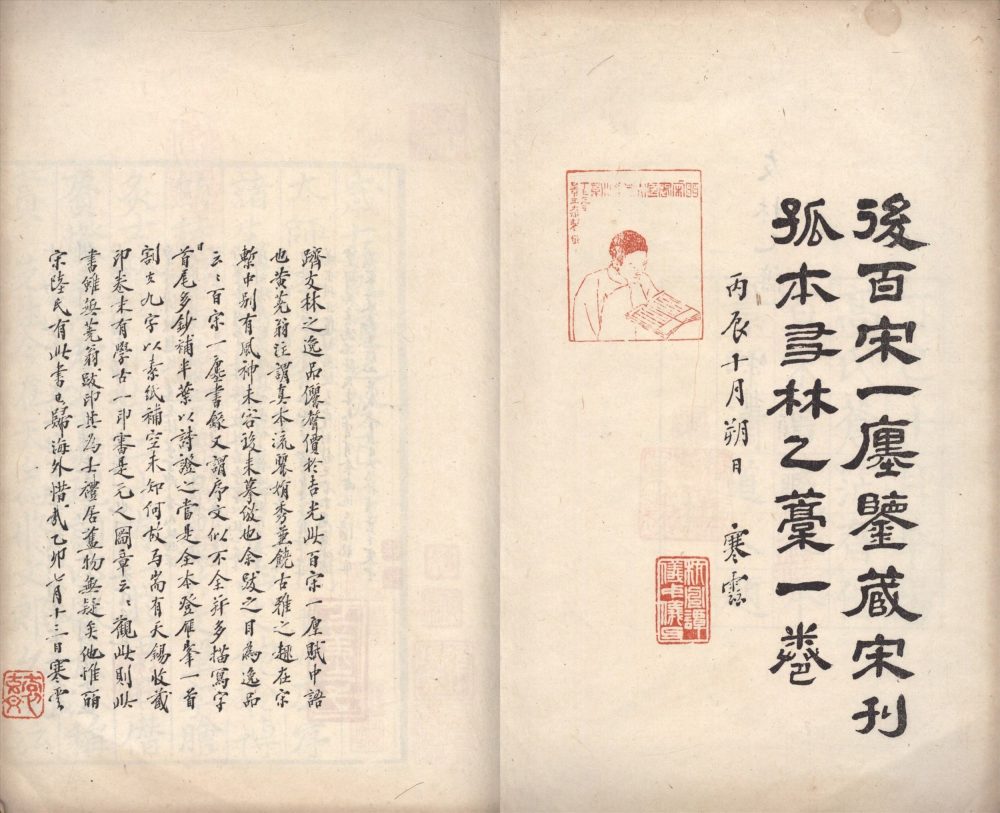 後百宋一廛鑒藏宋刊
孤本友林乙稾一卷
丙辰十月朔日 寒雲
躋友林之逸品儷聲價於吉光此百宋一廛賦中語
也黃蕘翁注謂真本流麗娟秀兼饒古雅之趣在宋
槧中別有風神未容後來摹倣也余跋之目為逸品
云云百宋一廛書錄又謂序文似不全并多描寫字
首尾多鈔補半葉以詩證之當是全本登雁峯一首
割去九字以素紙補空未知何故尚有天錫收藏
印卷末有學古一印審是元人圖章云云觀此則此
書雖無蕘翁跋印其為士禮居舊物無疑矣他惟皕
宋陸氏有此書已歸海外惜哉乙卯七月十三日寒雲